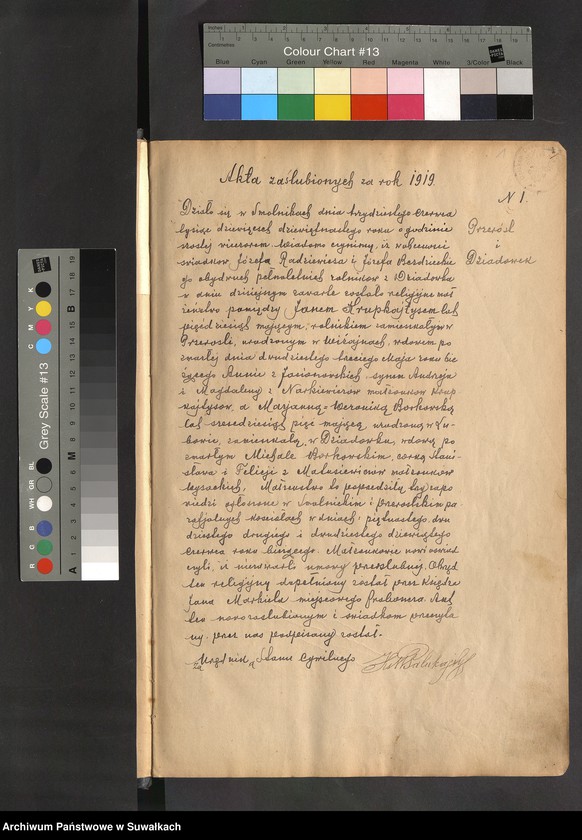 Inches
Centimetres
Colour Chart #13
Blue Cyan Green Yellow Red Magenta White 3/Color Black
Grey Scale #13
C M Y K
R G B WH GR BL
A M B
Akta zaślubionych za rok 1919.
N 1.
Przerośl
i
Dziadówek
Działo się w Smolnikach dnia trzydziestego czerwca
tysiąc dziewięćset dziewiętnastego roku o godzinie
szóstej wieczorem. Wiadomo czynimy, iż w obecności
świadków Józefa Radziewicza i Józefa Berdzickie
go obydwóch pełnoletnich rolników z Dziadówka
w dniu dzisiejszym zawarte zostało religijne mał
żeństwo pomiędzy Janem Krupkajtysem lat
pięćdziesiąt mającym, rolnikiem zamieszkałym w
Przerośli, urodzonym w Wiżajnach, wdowcem po
zmarłej dnia dwudziestego trzeciego Maja roku bie
żącego Annie z synem Andrzeja
i Magdaleny z Narkiewiczów małżonków Krup
kajtysów, a Marjanną-Weroniką Borkowską
lat sześćdziesiąt pięć mającą urodzoną w Łu-
bowie, zamieszkałą w Dziadówku, wdową po
zmarłym Michale Borkowskim, córką Stani-
sława i Felicji z małżonków
Małżeństwo to poprzedziły trzy zapo
wiedzi ogłoszone w Smolnickim i przeroślskim pa
rafjalnych kościołach w dniach: piętnastego, dwu
dziestego drugiego i dwudziestego dziewiątego
Czerwca roku bieżącego. Małżonkowie nowi oświad
czyli, iż nie zawarli umowy przedślubnej. Obrzęd
ten religijny dopełniony został przez Księdza
Jana Markiela miejscowego proboszcza. Akt
ten nowozaślubionym i świadkom przeczyta
ny, przez nas podpisany został.-
za Urzędnika Stanu Cywilnego
Archiwum Państwowe w Suwałkach